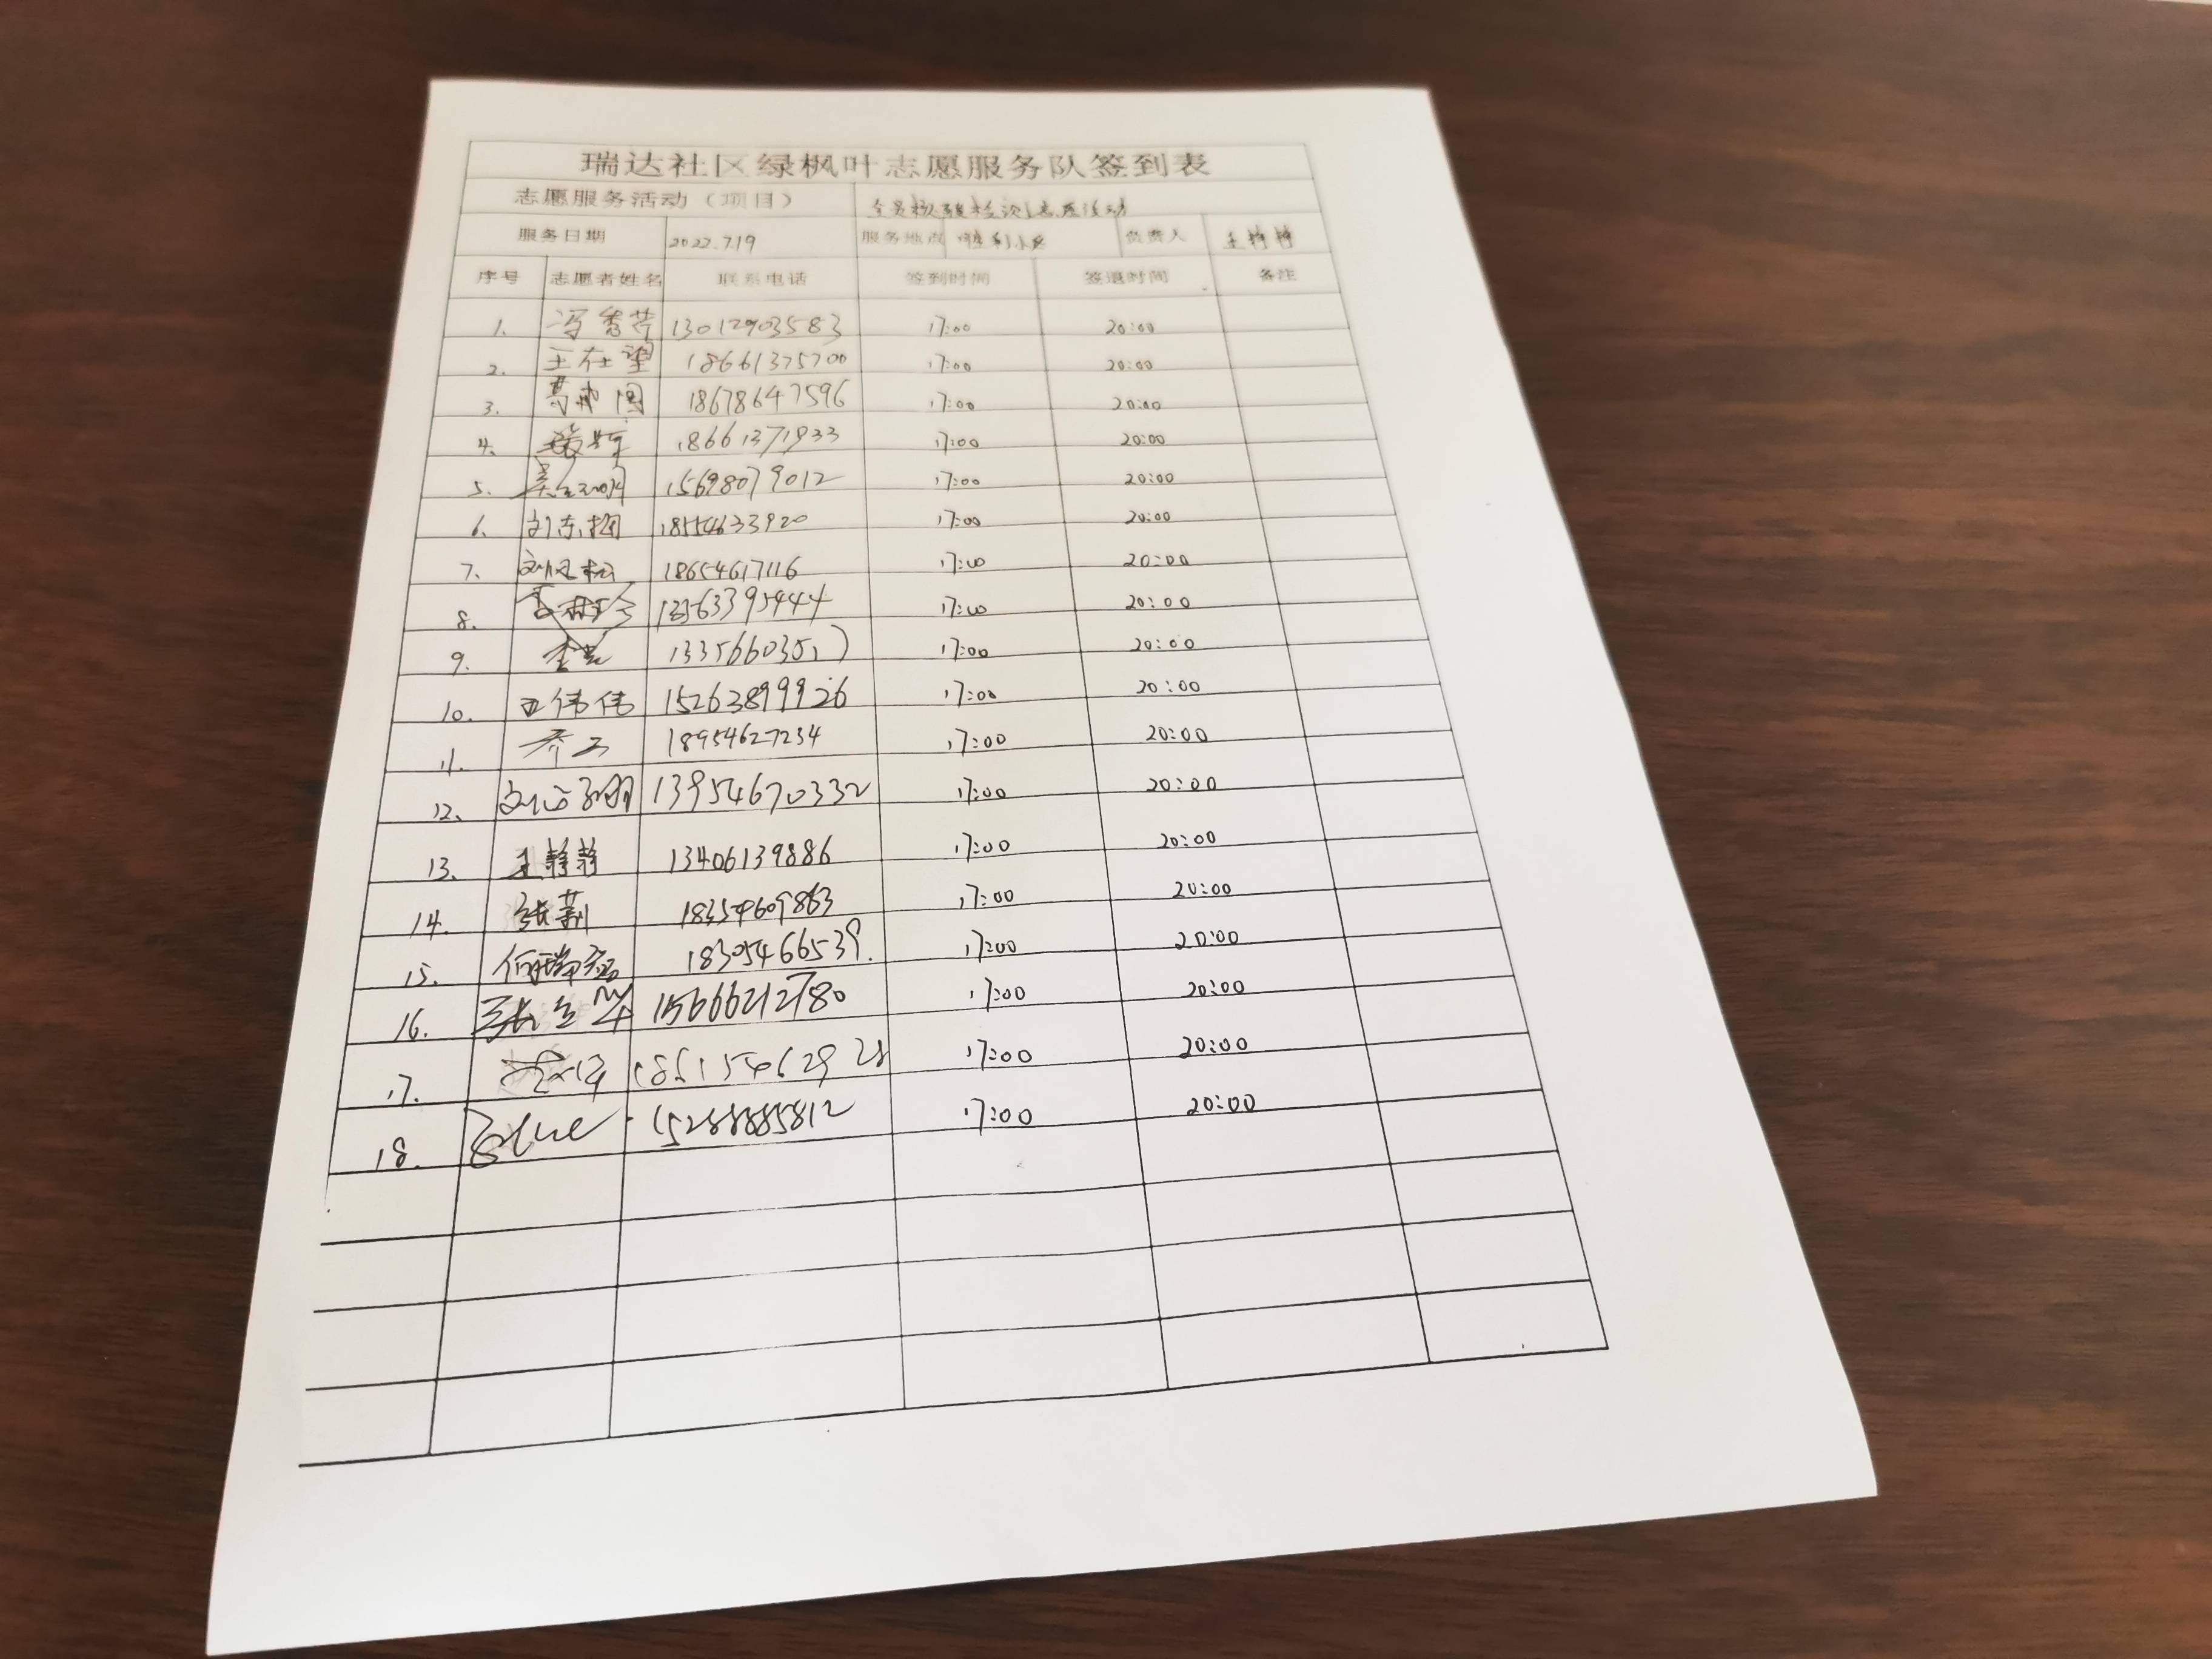 瑞达社区绿枫叶志愿服务队签到表
志愿服务活动（项目） 全员核酸检测志愿活动
服务日期 2022.7.19 服务地点 胜利小区 负责人 王静静
序号 志愿者姓名 联系电话 签到时间 签退时间 备注
1. 冯香芹 13012903583 17:00 20:00
2. 王在望 18661375700 17:00 20:00
3. 18678647596 17:00 20:00
4. 18661371933 17:00 20:00
5. 15698079012 17:00 20:00
6. 刘东梅 18554633920 17:00 20:00
7. 18654617116 17:00 20:00
8. 17:00 20:00
9. 17:00 20:00
10. 王伟伟 15263899926 17:00 20:00
11. 18954627234 17:00 20:00
12. 13954670332 17:00 20:00
13. 王静静 13406139886 17:00 20:00
14. 18354609863 17:00 20:00
15. 18305466539. 17:00 20:00
16. 15666212780 17:00 20:00
17. 17:00 20:00
18. 15288885812 17:00 20:00